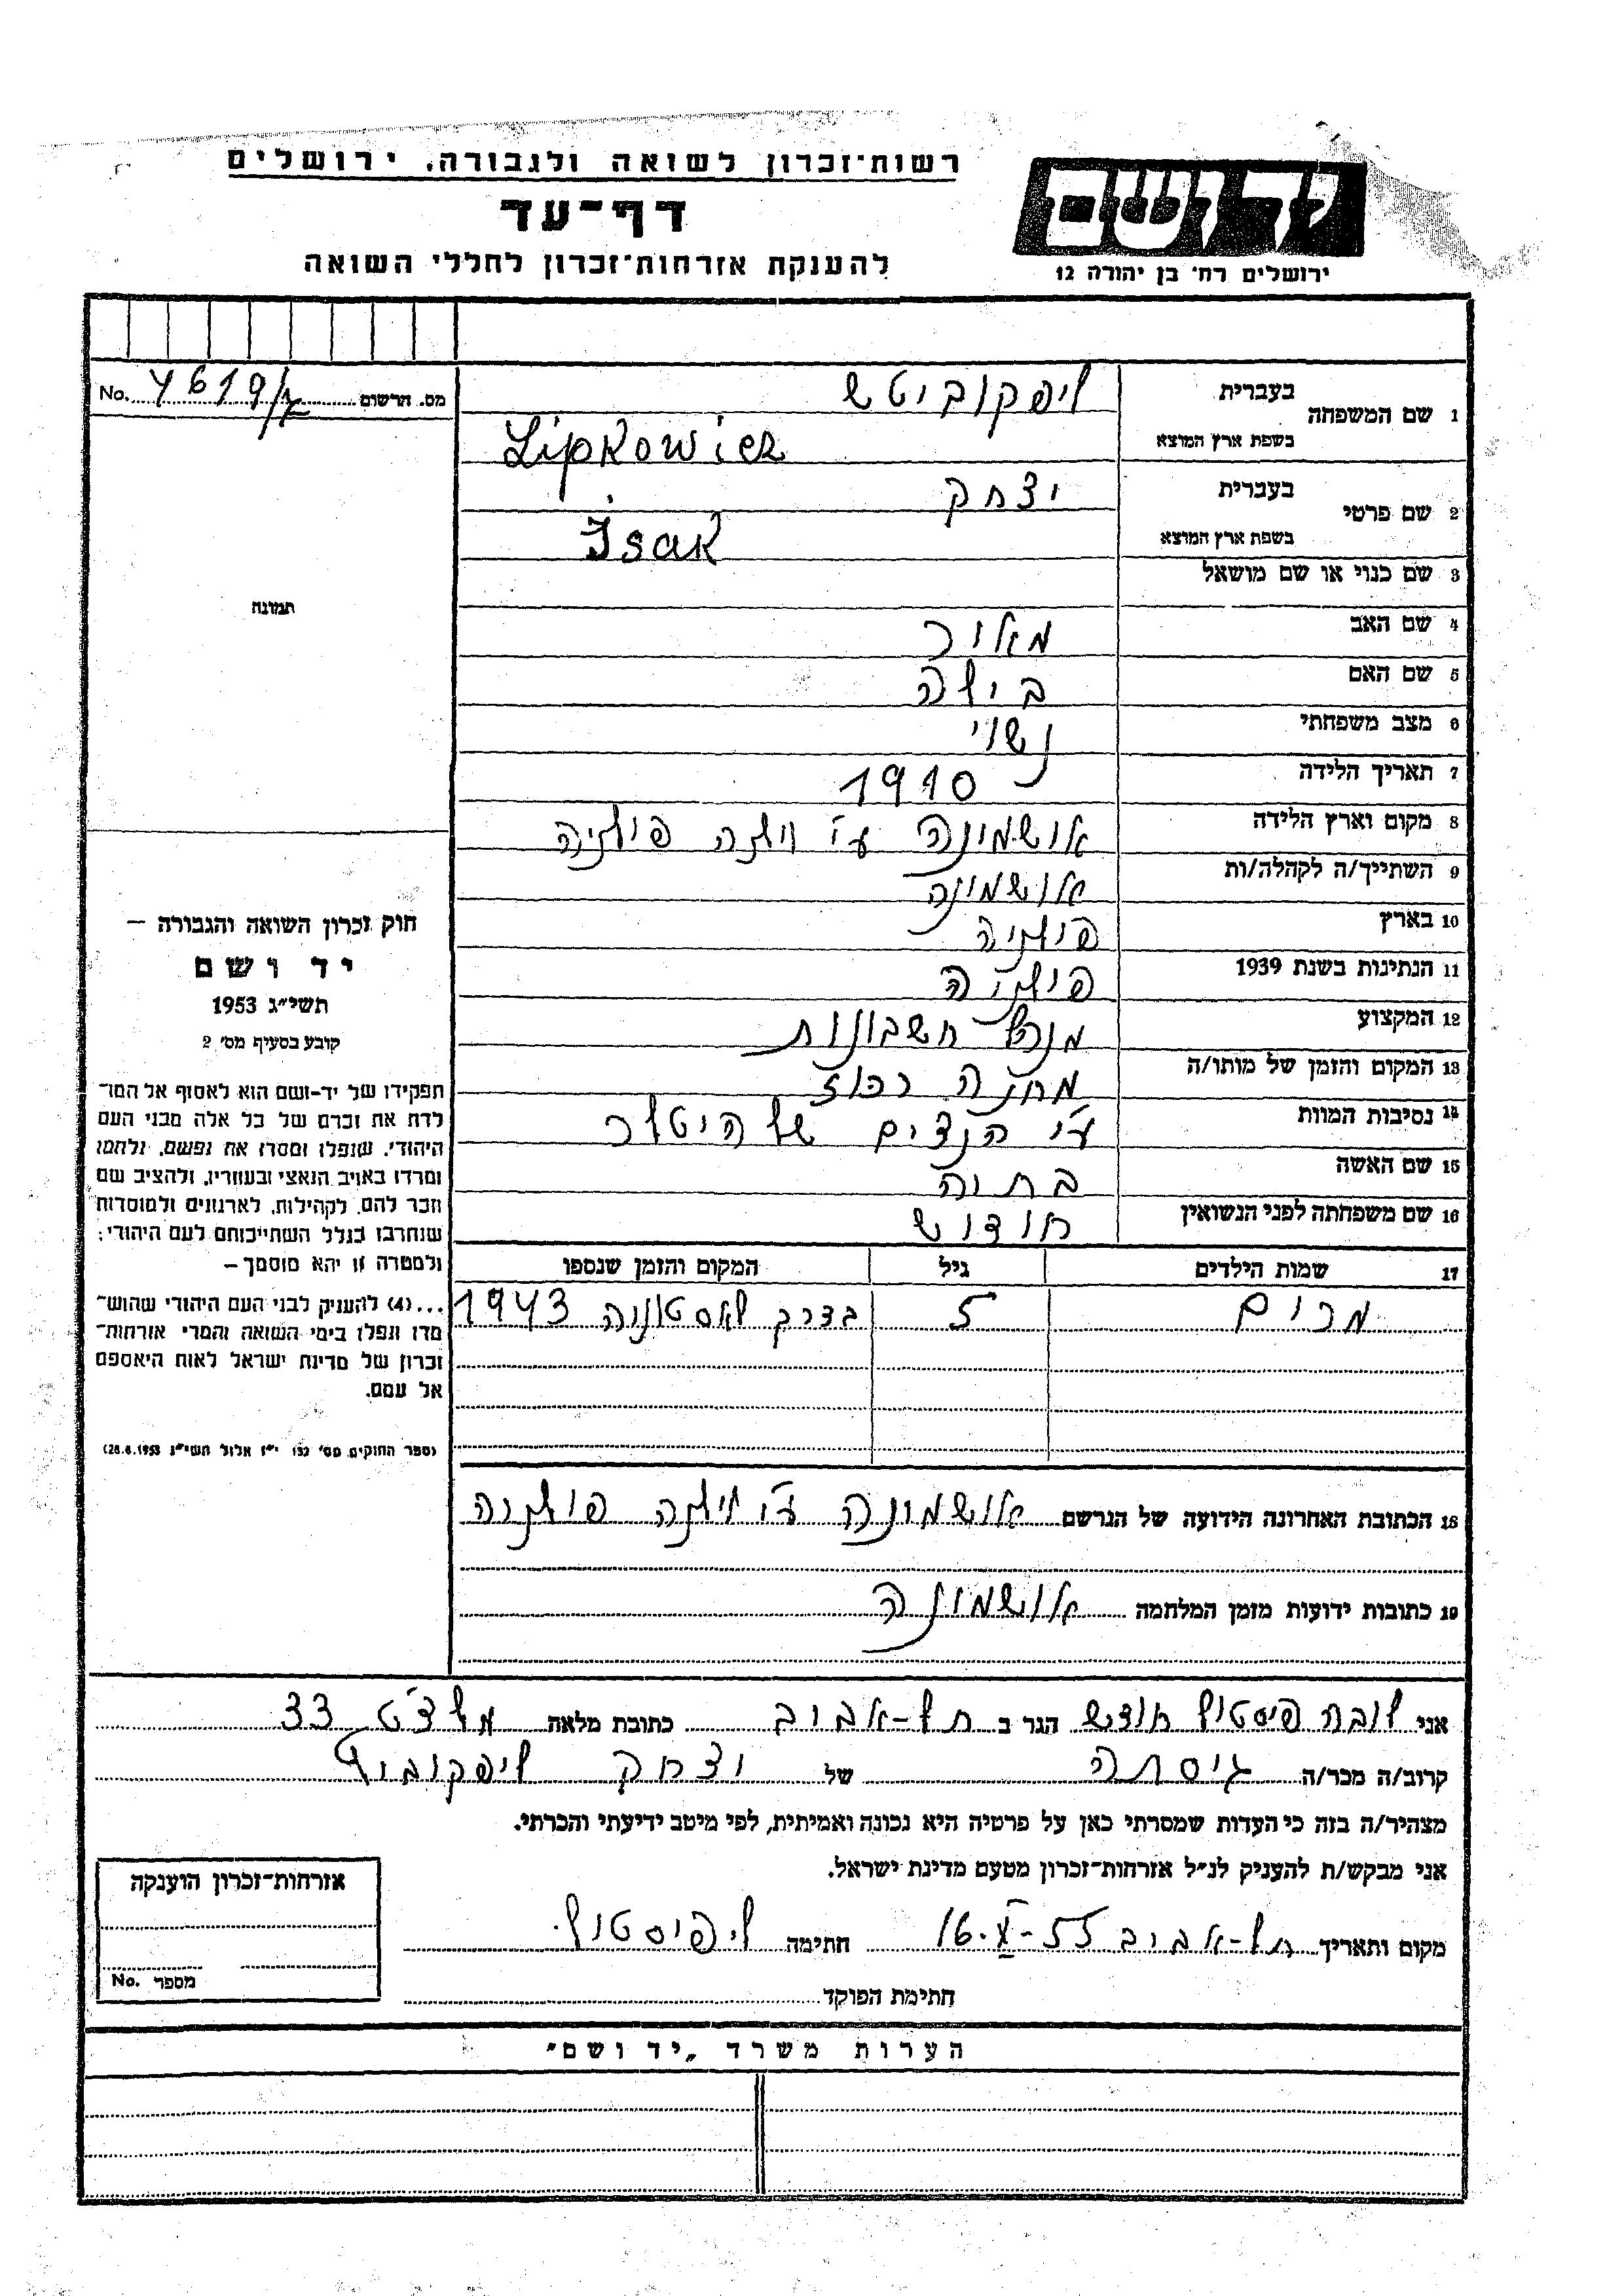 רשות־זכרון לשואה ולגבורה, ירושלים
דף־עד
להענקת אזרחות־זכרון לחללי השואה
יד ושם
ירושלים רח׳ בן יהודה 12
מס. הרשום No.
1 שם המשפחה
בעברית ליפקוביטש
בשפת ארץ המוצא Lipkowicz
2 שם פרטי
בעברית יצחק
בשפת ארץ המוצא Isak
3 שם כנוי או שם מושאל
4 שם האב מאיר
5 שם האם בילה
6 מצב משפחתי נשוי
7 תאריך הלידה 1910
8 מקום וארץ הלידה אושמינה ע״י וילנה פולניה
9 השתייך/ה לקהלה/ות אושמינה
10 בארץ פולניה
11 הנתינות בשנת 1939 פולניה
12 המקצוע מנהל חשבונות
13 המקום והזמן של מותו/ה מחנה רכוז
14 נסיבות המוות ע״י הנצים של היטלר
15 שם האשה בתיה
16 שם משפחתה לפני הנשואין חודוש
17 שמות הילדים גיל המקום והזמן שנספו
מרים 5 בדרך לאסטוניה 1943
תמונה
חוק זכרון השואה והגבורה –
יד ושם
תשי״ג 1953
קובע בסעיף מס׳ 2
תפקידו של יד-ושם הוא לאסוף אל המו־
לדת את זכרם של כל אלה מבני העם
היהודי, שנפלו ומסרו את נפשם, נלחמו
ומרדו באויב הנאצי ובעוזריו, ולהציב שם
וזכר להם, לקהילות, לארגונים ולמוסדות
שנחרבו בגלל השתייכותם לעם היהודי;
ולמטרה זו יהא מוסמך –
...(4) להעניק לבני העם היהודי שהוש־
מדו ונפלו בימי השואה והמרי אזרחות־
זכרון של מדינת ישראל לאות היאספם
אל עמם.
(ספר החוקים מס׳ 132 י״ז אלול תשי״ג 28.8.1953)
18 הכתובת האחרונה הידועה של הנרשם אושמינה ע״י וילנה פולניה
19 כתובות ידועות מזמן המלחמה אושמינה
אני ליבה פיסטול חודש הגר ב תל-אביב כתובת מלאה מלצ׳ט 33
קרוב/ה מכר/ה גיסתה של יצחק ליפקוביטש
מצהיר/ה בזה כי העדות שמסרתי כאן על פרטיה היא נכונה ואמיתית, לפי מיטב ידיעתי והכרתי.
אני מבקש/ת להעניק לנ״ל אזרחות־זכרון מטעם מדינת ישראל.
מקום ותאריך תל-אביב 16.X-55 חתימה ל. פיסטול
חתימת הפוקד
אזרחות־זכרון הוענקה
מספר No.
הערות משרד „יד ושם״